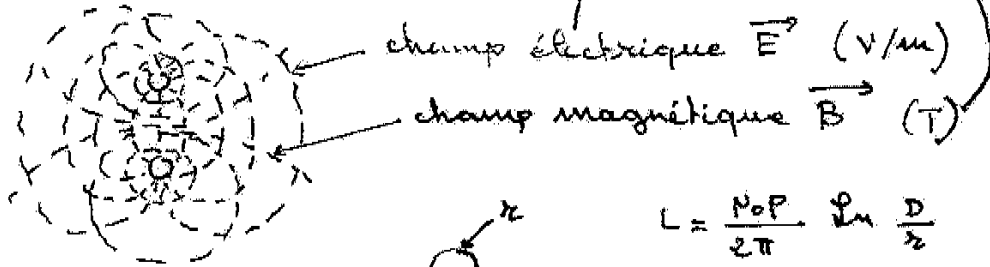 champ électrique E⃗ (V/m)
champ magnétique B⃗ (T)
r
L = μ₀ρ/2π Ln D/r